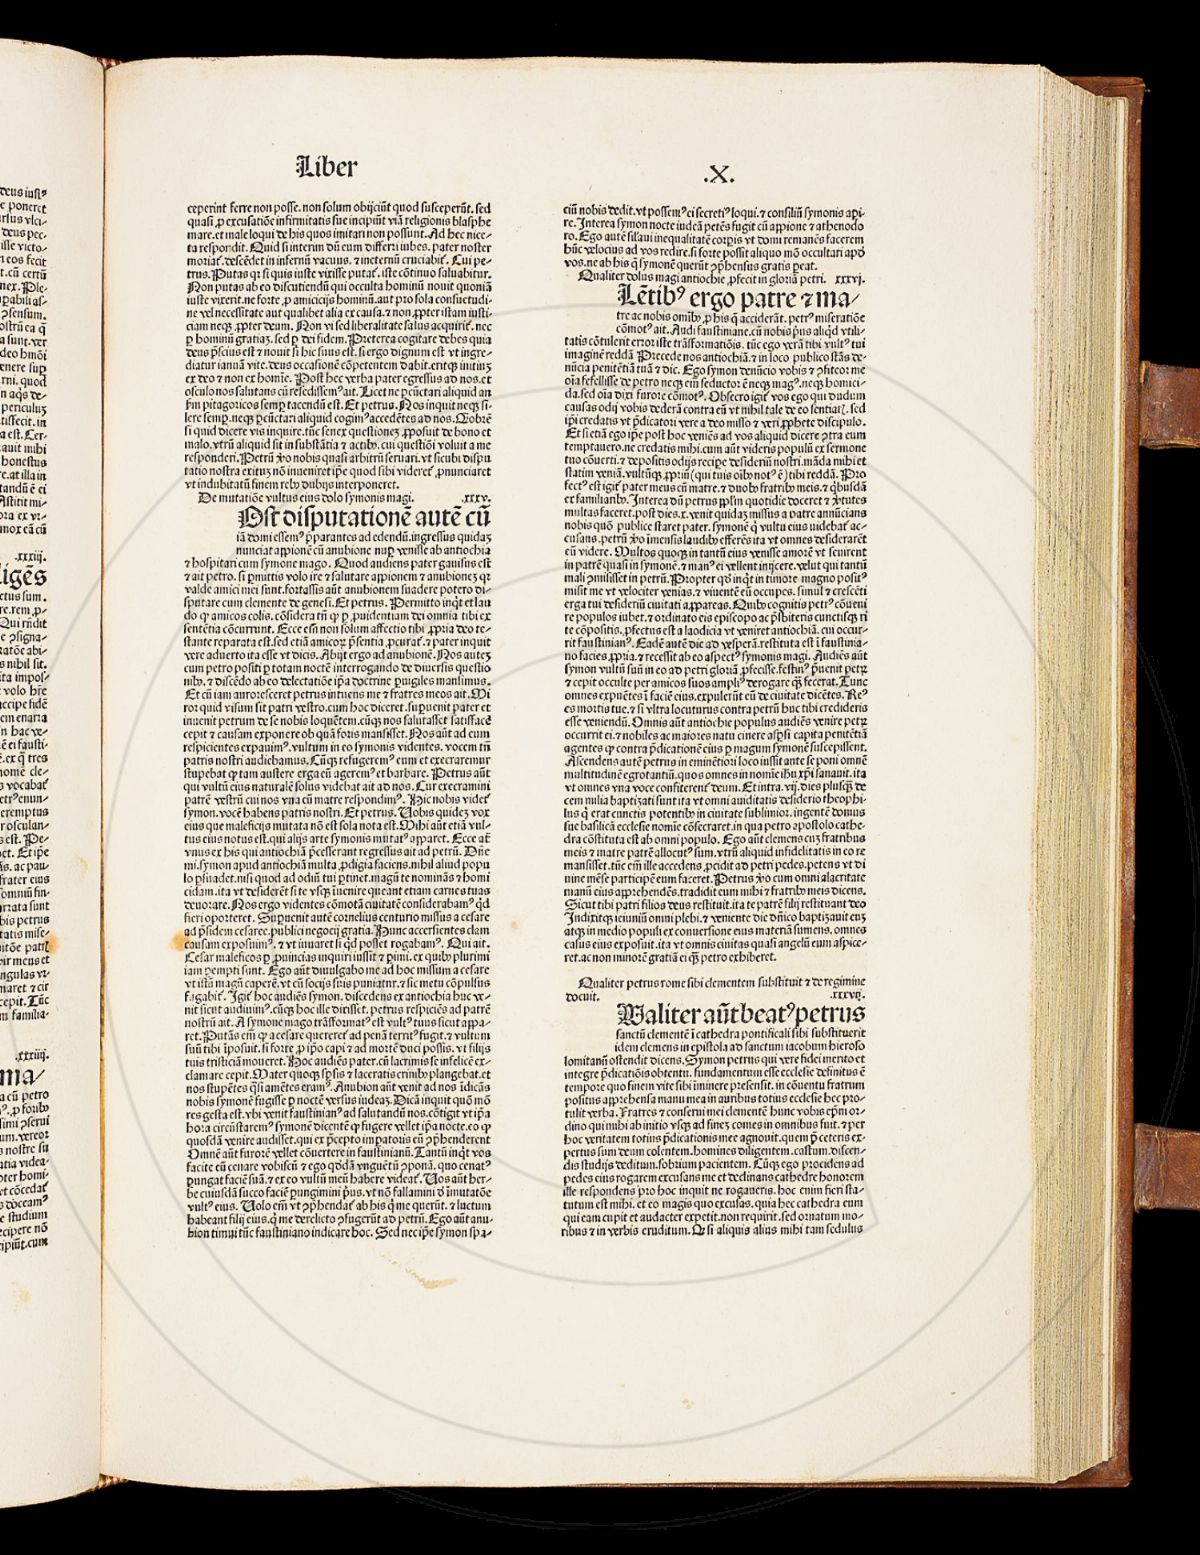 Liber
.X.
ceperint ferre non posse. non solum obijciūt quod susceperūt. sed
quasi ꝓ excusatiōe infirmitatis sue incipiūt viā religionis blasphe
mare. et male loqui de his quos imitari non possunt. Ad hec nice⸗
ta respondit. Quid si interim dū eum differri iubes. pater noster
moriat᷑. descēdet in infernū vacuus. ⁊ ineternū cruciabit᷑. Cui pe⸗
trus. Putas qꝛ si quis iuste vixisse putat᷑. iste cōtinuo saluabitur.
Non putas ab eo discutiendū qui occulta hominū nouit quoniā
iuste vixerit. ne forte ꝓ amicicijs hominū. aut pro sola consuetudi⸗
ne vel necessitate aut qualibet alia ex causa. ⁊ non ꝓpter ipsam iusti⸗
ciam neqꝫ ꝓpter deum. Non vi sed liberalitate salus acquirit᷑. nec
ꝑ hominū gratiaꝫ. sed ꝑ dei fidem. Preterea cogitare debes quia
deus p̄scius est ⁊ nouit si hic suus est. si ergo dignum est vt ingre⸗
diatur ianuā vite. deus occasionē cōpetentem dabit. eritqꝫ initiuꝫ
ex deo ⁊ non ex homīe. Post hec verba pater egressus ad nos. et
osculo nos salutans cū resedissemꝰ ait. Licet ne ꝑcūctari aliquid an
fm pitagoricos semꝑ tacendū est. Et petrus. Nos inquit neqꝫ si⸗
lere semꝑ. neqꝫ ꝑcūctari aliquid cogimꝰ accedētes ad nos. Quobrē
si quid dicere vis inquire. tūc senex questioneꝫ ꝓposuit de bono et
malo. vtrū aliquid sit in substātia ⁊ actibꝰ. cui questiōi voluit a me
responderi. Petrū ꝟo nobis quasi arbitrū seruari. vt sicubi dispu
tatio nostra exituꝫ nō inueniret ip̄e quod sibi videret᷑ ꝓnunciaret
vt indubitatū finem rebꝰ dubijs interponeret.
De mutatiōe vultus eius dolo symonis magi. .xxxv.
Ost disputationē autē cū
iā domi essemꝰ p̄parantes ad edendū. ingressus quidaꝫ
nunciat appionē cū anubione nuꝑ venisse ab antiochia
⁊ hospitari cum symone mago. Quod audiens pater gauisus est
⁊ ait petro. si ꝑmittis volo ire ⁊ salutare appionem ⁊ anubioneꝫ qꝛ
valde amici mei sunt. fortassis aūt anubionem suadere potero di⸗
sputare cum clemente de genesi. Et petrus. Permitto inqͥt et lau
do ꝙ amicos colis. cōsidera tn̄ ꝙ ꝑ ꝓuidentiam dei omnia tibi ex
sententia cōcurrunt. Ecce em̄ non solum affectio tibi ꝓpria deo te⸗
stante reparata est. sed etiā amicoꝝ p̄sentia ꝓcurat᷑. ⁊ pater inquit
vere aduerto ita esse vt dicis. Abijt ergo ad anubionē. Nos auteꝫ
cum petro positi ꝑ totam noctē interrogando de diuersis questio
nibꝰ. ⁊ discēdo ab eo delectatiōe ip̄a doctrine ꝑuigiles mansimus.
Et cū iam auroresceret petrus intuens me ⁊ fratres meos ait. Mi
ror quid visum sit patri vestro. cum hoc diceret. suꝑuenit pater et
inuenit petrum de se nobis loquētem. cūqꝫ nos salutasset satisface
cepit ⁊ causam exponere ob quā foris mansisset. Nos aūt ad eum
respicientes expauimꝰ. vultum in eo symonis videntes. vocem tn̄
patris nostri audiebamus. Cūqꝫ refugeremꝰ eum et execraremur
stupebat ꝙ tam austere erga eū ageremꝰ et barbare. Petrus aūt
qui vultū eius naturalē solus videbat ait ad nos. Cur execramini
patrē vestrū cui nos vna cū matre respondimꝰ. Hic nobis videt᷑
symon. vocē habens patris nostri. Et petrus. Uobis quideꝫ vox
eius que maleficijs mutata nō est sola nota est. Mihi aūt etiā vul⸗
tus eius notus est. qui alijs arte symonis mutatꝰ apparet. Ecce at̄
vnus ex his qui antiochiā p̄cesserant regressus ait ad petrū. Dn̄e
mi. symon apud antiochiā multa ꝓdigia faciens. nihil aliud popu
lo ꝑsuadet. nisi quod ad odiū tui ꝑtinet. magū te nominās ⁊ homi
cidam. ita vt desiderēt si te vsqꝫ īuenire queant etiam carnes tuas
deuorare. Nos ergo videntes cōmotā ciuitatē considerabamꝰ qͥd
fieri oporteret. Suꝑuenit autē cornelius centurio missus a cesare
ad p̄sidem cesaree. publici negocij gratia. Hunc accersientes clam
causam exposuimꝰ. ⁊ vt iuuaret si qͥd posset rogabamꝰ. Qui ait.
Cesar maleficos ꝑ ꝓuincias inquiri iussit ⁊ ꝑimi. ex quibꝰ plurimi
iam ꝑempti sunt. Ego aūt diuulgabo me ad hoc missum a cesare
vt istā magū caperē. vt cū socijs suis puniatur. ⁊ sic metu cōpulsus
fugabit᷑. Igit᷑ hoc audiēs symon. discedens ex antiochia huc ve⸗
nit sicut audiuimꝰ. cūqꝫ hoc ille dixisset. petrus respiciēs ad patrē
nostrū ait. A symone mago trāsformatꝰ est vultꝰ tuus sicut appa⸗
ret. Putās em̄ ꝙ a cesare quereret᷑ ad penā territꝰ fugit. ⁊ vultum
suū tibi īposuit. si forte ꝓ ip̄o capi ⁊ ad mortē duci possis. vt filijs
tuis tristiciā moueret. Hoc audiēs pater. cū lacrimis se infelicē ex⸗
clamare cepit. Mater quoqꝫ sp̄sis ⁊ laceratis crinibꝰ plangebat. et
nos stupētes q̄si amētes eramꝰ. Anubion aūt venit ad nos īdicās
nobis symonē fugisse ꝑ noctē versus iudeaꝫ. Dicā inquit quō mō
res gesta est. vbi venit faustinianꝰ ad salutandū nos. cōtigit vt ip̄a
hora circūstaremꝰ symonē dicentē ꝙ fugere vellet ip̄a nocte. eo ꝙ
quosdā venire audisset. qui ex p̄cepto impatoris eū ↄp̄henderent
Omnē aūt furorē vellet cōuertere in faustinianū. Tantū inqͥt vos
facite eū cenare vobiscū ⁊ ego qd̄dā vnguētū ↄponā. quo cenatꝰ
ꝑungat faciē suā. ⁊ ex eo vultū meū habere videat᷑. Uos aūt her⸗
be cuiusdā succo faciē ꝑungimini p̄us. vt nō fallamini ð īmutatōe
vultꝰ eius. Uolo em̄ vt ↄp̄hendat᷑ ab his q̄ me querūt. ⁊ luctum
habeant filij eius. q̄ me derelicto ↄfugerūt ad petrū. Ego aūt anu⸗
bion timui tūc faustiniano indicare hoc. Sed nec ip̄e symon spa⸗
ciū nobis dedit. vt possemꝰ ei secretiꝰ loqui. ⁊ consiliū symonis api⸗
re. Interea symon nocte iudeā petēs fugit cū appione ⁊ athenodo
ro. Ego autē simlaui inequalitatē corpīs vt domi remanēs facerem
hūc velocius ad vos redire. si forte possit aliquo mō occultari apd̄
vos. ne ab his q̄ symonē querūt ↄp̄hensus gratis ꝑeat.
Qualiter dolus magi antiochie ꝓfecit in gloriā petri. xxxvj.
Lētibꝰ ergo patre ⁊ ma⸗
tre ac nobis om̄ibꝰ ꝓ his q̄ acciderāt. petrꝰ miseratiōe
cōmotꝰ ait. Audi faustiniane. cū nobis p̄us aliqͥd vtili⸗
tatis cōtulerit error iste trāsformatiōis. tūc ego verā tibi vultꝰ tui
imaginē reddā Precede nos antiochiā. ⁊ in loco publico stās de⸗
nūcia penitētiā tuā ⁊ dic. Ego symon denūcio vobis ⁊ ↄfiteor me
oīa fefellisse de petro neqꝫ em̄ seductor ē neqꝫ magꝰ. neqꝫ homici⸗
da. sed oīa dixi furore cōmotꝰ. Obsecro igit᷑ vos ego qui dudum
causas odij vobis dederā contra eū vt nihil tale de eo sentiat᷑. sed
ip̄i credatis vt p̄dicatori vere a deo misso ⁊ veri ꝓphete discipulo.
Et si etiā ego ip̄e post hoc veniēs ad vos aliquid dicere ↄtra eum
temptauero. ne credatis mihi. cum aūt videris populū ex sermone
tuo cōuerti. ⁊ depositis odijs recipe desideriū nostri. māda mihi et
statim veniā. vultūqꝫ ꝓpriū (qui tuis oībꝰ notꝰ ē) tibi reddā. Pro
fectꝰ est igit᷑ pater meus cū matre. ⁊ duobꝰ fratribꝰ meis. ⁊ q̄busdā
ex familiaribꝰ. Interea dū petrus pp̄lm quotidie doceret ⁊ ꝟtutes
multas faceret. post dies. x. venit quidaꝫ missus a patre annūcians
nobis quō publice staret pater. symonē q̄ vultu eius uidebat᷑ ac⸗
cusans. petrū ꝟo īmensis laudibꝰ efferēs ita vt omnes desiderarēt
eū videre. Multos quoqꝫ in tantū eius venisse amorē vt seuirent
in patrē quasi in symonē. ⁊ manꝰ ei vellent inijcere. velut qui tantū
mali ↄmisisset in petrū. Propter qd̄ inqͥt in timore magno positꝰ
misit me vt velociter venias. ⁊ viuentē eū occupes. simul ⁊ crescēti
erga tui desideriū ciuitati appareas. Quibꝰ cognitis petrꝰ cōueni
re populos iubet. ⁊ ordinato eis episcopo ac p̄sbiteris cunctisqꝫ ri
te cōpositis. ꝓfectus est a laodicia vt veniret antiochiā. cui occur⸗
rit faustinianꝰ. Eadē autē die ad vesperā. restituta est ī faustinia⸗
no facies ꝓpria. ⁊ recessit ab eo aspectꝰ symonis magi. Audiēs aūt
symon vultū suū in eo ad petri gloriā ꝓfecisse. festinꝰ p̄uenit petrū
⁊ cepit occulte per amicos suos ampliꝰ derogare qͣꝫ fecerat. Tunc
omnes expuētes ī faciē eius. expulerūt eū de ciuitate dicētes. Reꝰ
es mortis tue. ⁊ si vltra locuturus contra petrū huc tibi credideris
esse veniendū. Omnis aūt antiochie populus audiēs venire petꝝ
occurrit ei. ⁊ nobiles ac maiores natu cinere asp̄si capita penitētiā
agentes ꝙ contra p̄dicationē eius ꝑ magum symonē suscepissent.
Ascendens autē petrus in eminētiori loco iussit ante se poni omnē
multitudinē egrotantiū. quos omnes in nomīe ihu xp̄i sanauit. ita
vt omnes vna voce confiterent᷑ deum. Et intra. vij. dies plusqͣꝫ de
cem milia baptizati sunt ita vt omni auiditatis desiderio theophi⸗
lus q̄ erat cunctis potentibꝰ in ciuitate sublimior. ingentē domus
sue basilicā ecclesie nomīe cōsecraret. in qua petro apostolo cathe⸗
dra cōstituta est ab omni populo. Ego aūt clemens cuꝫ fratribus
meis ⁊ matre patrē allocutꝰ sum. vtrū aliquid infidelitatis in eo re
mansisset. tūc em̄ ille accedens ꝓcidit ad petri pedes. petens vt di
nine mēse participē eum faceret. Petrus ꝟo cum omni alacritate
manū eius apprehendēs. tradidit eum mihi ⁊ fratribꝰ meis dicens.
Sicut tibi patri filios deus restituit. ita te patrē filij restituant deo
Indixitqꝫ ieiuniū omni plebi. ⁊ veniente die dn̄ico baptizauit euꝫ
atqꝫ in medio populi ex conuersione eius materiā sumens. omnes
casus eius exposuit. ita vt omnis ciuitas quasi angelū eum aspice⸗
ret. ac non minorē gratiā ei qͣꝫ petro exhiberet.
Qualiter petrus rome sibi clementem substituit ⁊ de regimine
docuit. .xxxvij.
Ualiter aūt beatꝰ petrus
sanctū clementē ī cathedra pontificali sibi substituerit
idem clemens in epistola ad sanctum iacobum hieroso
lomitanū ostendit dicens. Symon petrus qui vere fidei merito et
integre p̄dicatiōis obtentu. fundamentum esse ecclesie definitus ē
tempore quo finem vite sibi īminere presensit. in cōuentu fratrum
positus apprehensa manu mea in auribus totius ecclesie hec pro⸗
tulit verba. Fratres ⁊ conserui mei clementē hunc vobis ep̄m or⸗
dino qui mihi ab initio vsqꝫ ad fineꝫ comes in omnibus fuit. ⁊ per
hoc veritatem totius p̄dicationis mee agnouit. quem p̄ ceteris ex⸗
pertus sum deum colentem. homines diligentem. castum. discen⸗
dis studijs deditum. sobrium pacientem. Cūqꝫ ego procidens ad
pedes eius rogarem excusans me et declinans cathedre honorem
ille respondens pro hoc inquit ne rogaueris. hoc enim fieri sta⸗
tutum est mihi. et eo magis quo excusas. quia hec cathedra eum
qui eam cupit et audacter expetit. non requirit. sed ornatum mo⸗
ribus ⁊ in verbis eruditum. Qd̄ si aliquis alius mihi tam sedulus